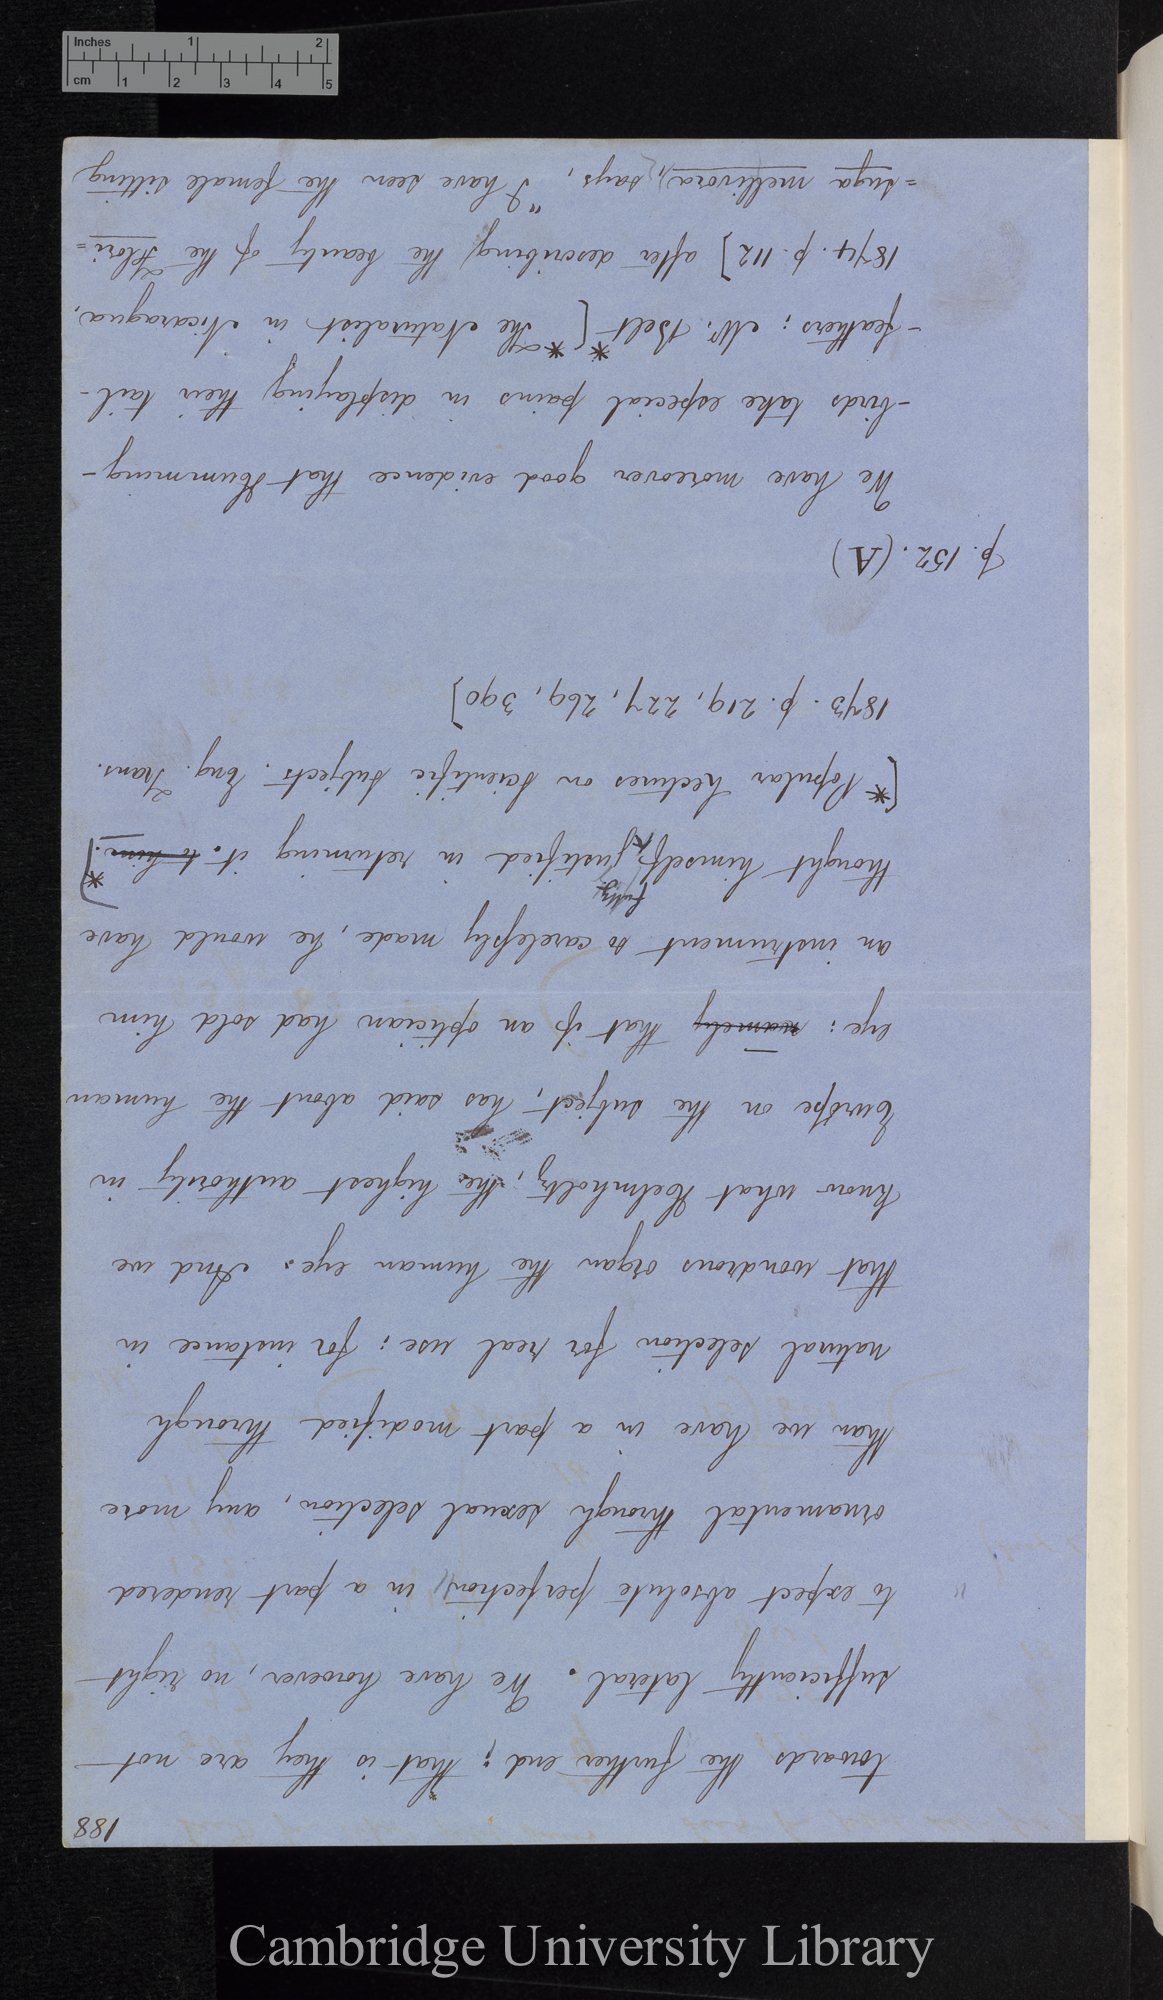 188
towards the further end; that is they are not
sufficiently lateral. We have however, no right
to expect absolute perfection, in a part rendered
ornamental through sexual selection, any more
than we have in a part modified through
natural selection for real use; for instance in
that wondrous organ the human eye. And we
know what Helmholtz, the highest authority in
Europe on the subject, has said about the human
eye: namely that if an optician had sold him
an instrument so carelessly made, he would have
fully
thought himself justified in returning it. to him. *]
[* Popular Lectures on Scientific Subjects. Eng. Trans.
1873. p. 219, 227, 269, 390]
p. 152. (A)
We have moreover good evidence that Humming-
-birds take especial pains in displaying their tail-
-feathers: Mr. Belt * [* The Naturalist in Nicaragua,
1874. p. 112] after describing the beauty of the Flori=
=suga mellivora, says, "I have seen the female sitting
Inches 1 2
cm 1 2 3 4 5
Cambridge University Library